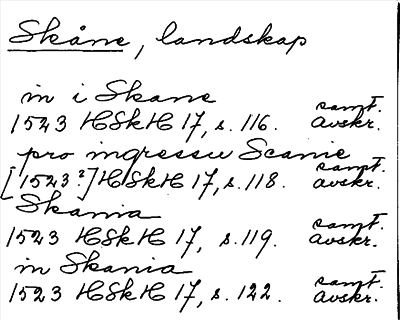 Skåne, landskap
in i Skane
1523 HSkH 17, s. 116. samt. avskr.
pro ingressu Scanie
[1523?] HSkH 17, s. 118. samt. avskr.
Skania
1523 HSkH 17, s. 119. samt. avskr.
in Skania
1523 HSkH 17, s. 122. samt. avskr.